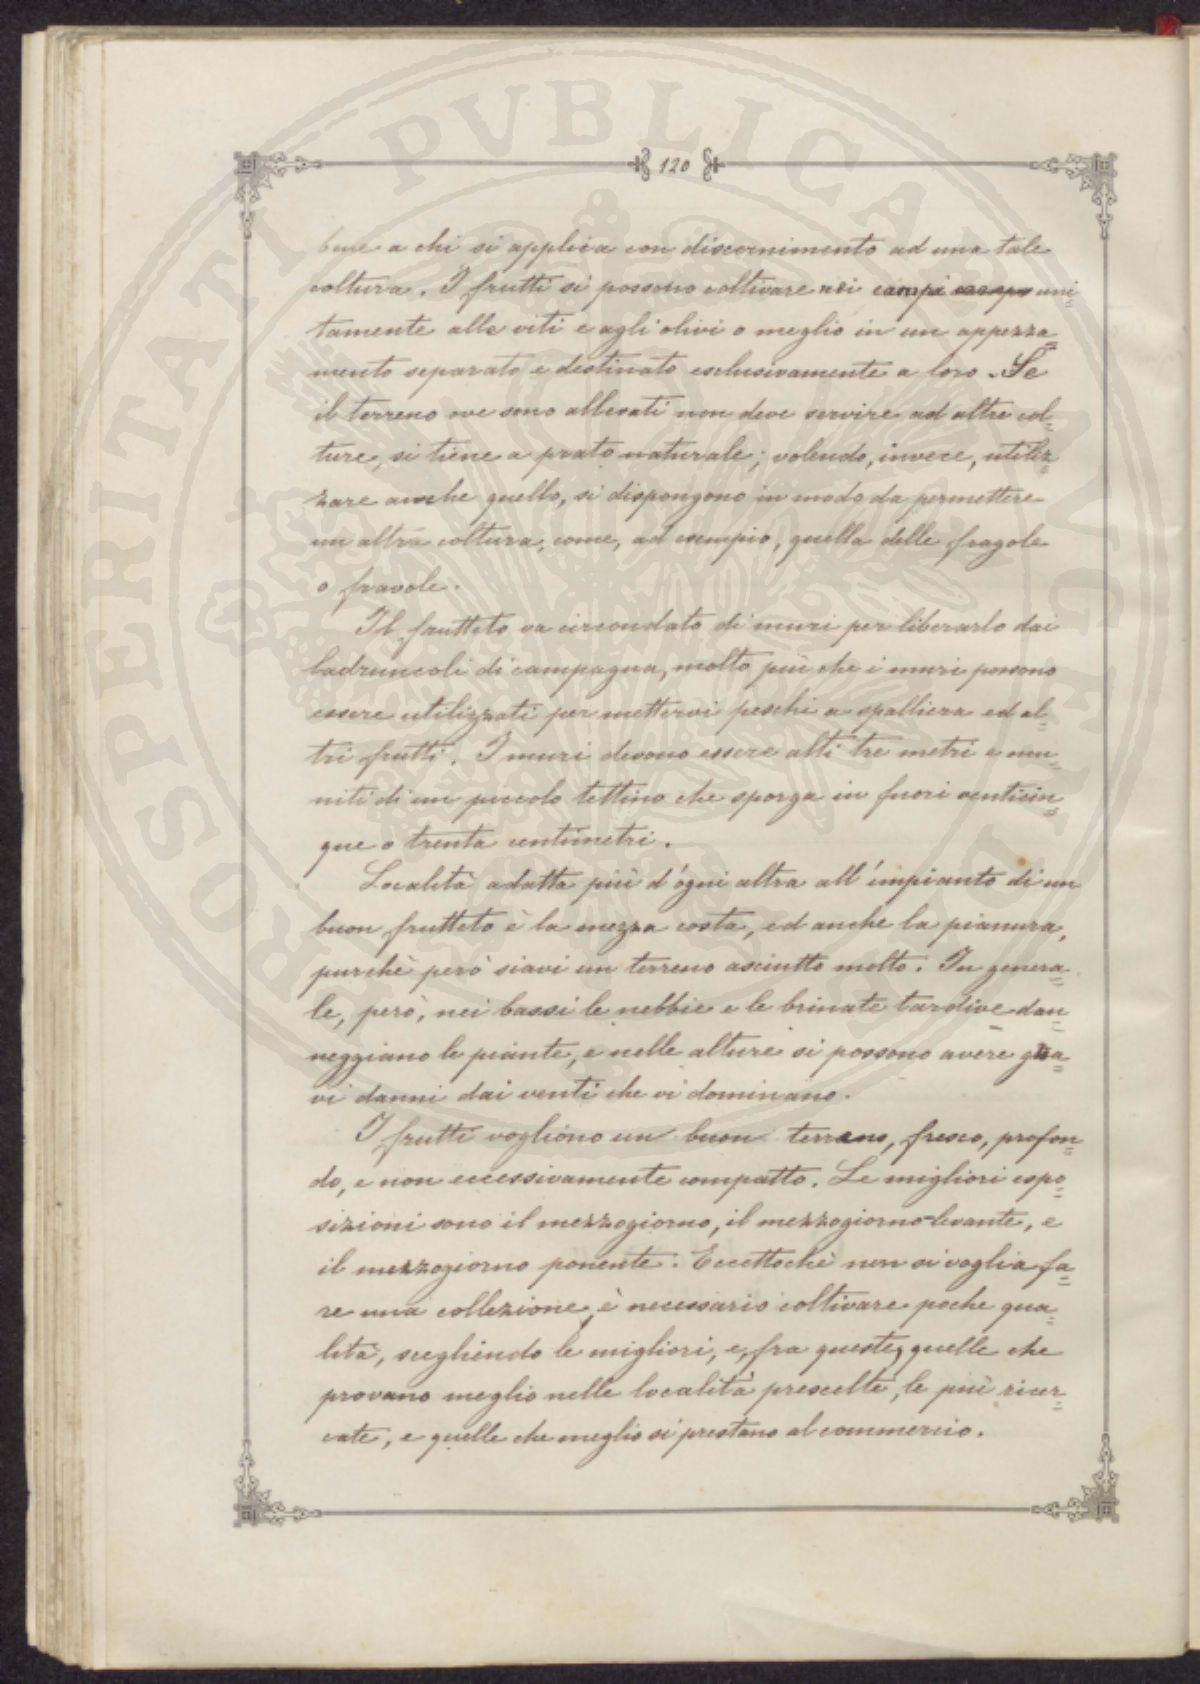 120
bene a chi si applica con discernimento ad una tale
coltura. I frutti si possono coltivare nei campi uni=
tamente alle viti e agli olivi o meglio in un appezza=
mento separato e destinato esclusivamente a loro. Se
il terreno ove sono allevati non deve servire ad altre col=
ture, si tiene a prato naturale; volendo, invece, utiliz=
zare anche quello, si dispongono in modo da permettere
un altra coltura, come, ad esempio, quella delle fragole
o fravole.
Il frutteto va circondato di muri per liberarlo dai
ladruncoli di campagna, molto più che i muri possono
essere utilizzati per mettervi peschi a spalliera ed al=
tri frutti. I muri devono essere alti tre metri e mu=
niti di un piccolo tettino che sporga in fuori venticin=
que o trenta centimetri.
Località adatta più d'ogni altra all'impianto di un
buon frutteto è la mezza costa, ed anche la pianura,
purchè però siavi un terreno asciutto molto. In genera=
le, però, nei bassi le nebbie e le brinate tardive dan=
neggiano le piante, e nelle alture si possono avere gra=
vi danni dai venti che vi dominano.
I frutti vogliono un buon terreno, fresco, profon=
do, e non eccessivamente compatto. Le migliori espo=
sizioni sono il mezzogiorno, il mezzogiorno-levante, e
il mezzogiorno ponente. Eccettochè non si voglia fa=
re una collezione, è necessario coltivare poche qua=
lità, scegliendo le migliori, e, fra queste, quelle che
provano meglio nelle località prescelte, le più ricer=
cate, e quelle che meglio si prestano al commercio.
PROSPERITATI PVBLICAE AVGENDAE